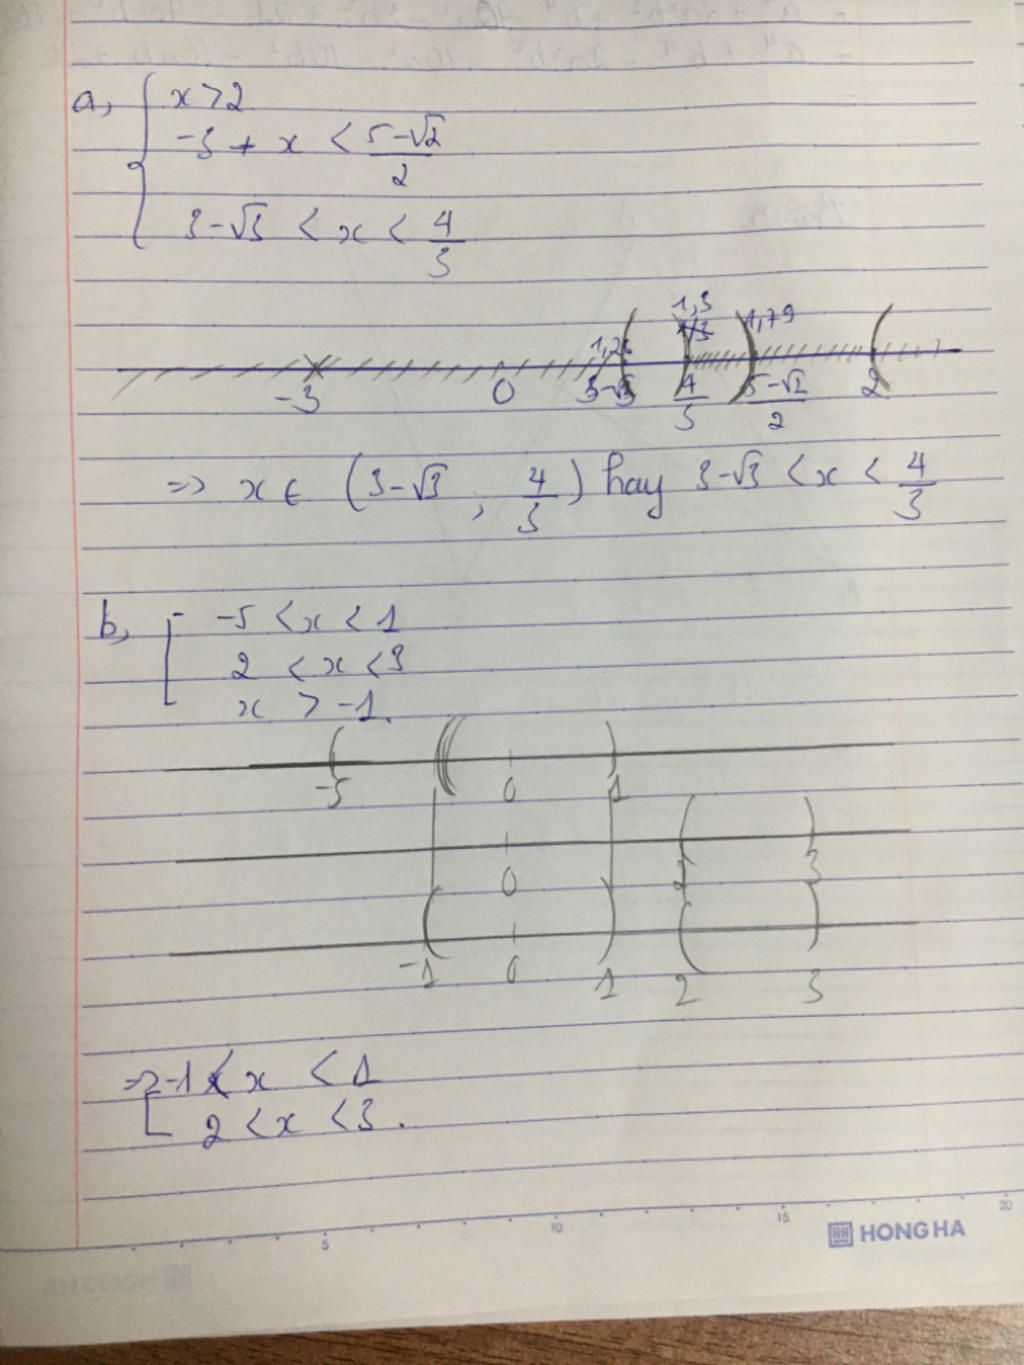 a, { x > 2
-3 + x < (5-√2)/2
3-√3 < x < 4/3
1,26 1,3 4/3 1,79
-3 0 3-√3 4/3 (5-√2)/2 2
=> x ∈ (3-√3 ; 4/3) hay 3-√3 < x < 4/3
b, [ -5 < x < 1
2 < x < 3
x > -1.
-5 0 1
0 2 3
-1 0 1 2 3
=> [ -1 < x < 1
2 < x < 3.
5 10 15 20
HH HONG HA